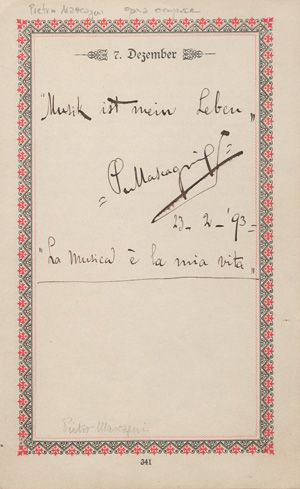 Pietro Mascagni opera composer
7. Dezember
"Musik ist mein Leben"
= P. Mascagni =
23-2-'93-
"La Musica è la mia vita"
Pietro Mascagni
341